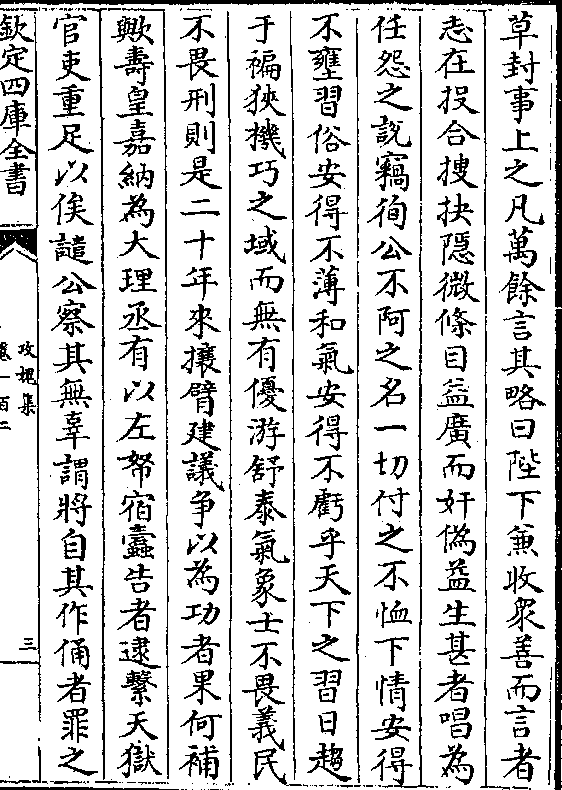 草封事上之凡萬餘言其略曰陛下兼收眾善而言者
志在投合搜抉隱微條目益廣而奸偽益生甚者唱為
任怨之説竊徇公不阿之名一切付之不恤下情安得
不壅習俗安得不薄和氣安得不虧乎天下之習日趨
于褊狹機巧之域而無有優游舒泰氣象士不畏義民
不畏刑則是二十年來攘臂建議爭以為功者果何補
歟壽皇嘉納為大理丞有以左帑宿蠧告者逮繫天獄
官吏重足以俟譴公察其無辜謂將自其作俑者罪之
欽定四庫全書
攻媿集
卷一百二
三